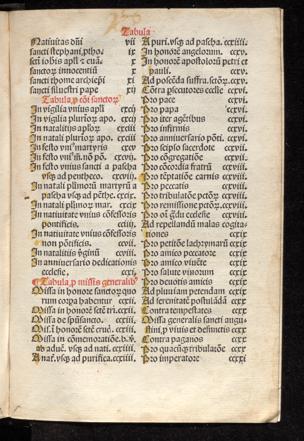 Tabula
Natiuitas dñi vii
sancti stephani ,ptho. ix
scti iohis apli ⁊ euã. x
sanctor̃ innocentiũ x
sancti thome archiepi xi
sancti siluestri pape xii
Tabula ,p cõi sanctor̃
In vigilia vnius apli cxcij
In vigilia plurior̃ apo. cxcij
In natalitijs apl'or̃.
In natali plurior̃ apo.
In festo vni⁹ martyris cxcv
In festo vni⁹ m̃. nõ põ. cxcvij
In festo vnius sancti a pascha
vsq̃ ad pentheco. cxcvij.
In natali pl'imorũ martyrũ a
pascha vsq̃ ad pẽthe. cxcix.
In natali pl'imor̃ mar. cxcix
In natiuitate vnius cõfessoris
pontificis. cciij.
In natiuitate vnius cõfessoris
non pontificis. ccvij.
In natalitijs v̓ginũ ccvij.
In anniuersario dedicationis
ecclesie, ccxj.
Tabula ,p missis generalib⁹
Missa in honore sanctor̃ quo
rum corpa habentur ccxij.
Missa in honorẽ scte tri. ccxij.
Missa de spũsancto. ccxiij.
Mis. ĩ honorẽ scte crucẽ. ccxiij.
Missa in cõmemoratiõe. b. v̓.
ab aduẽ. vsq̃ ad nati. ccxiiij.
A nat. vsq̃ ad purifica. ccxiiij.
A puri. vsq̃ ad pascha. ccxiiij.
In honorẽ angelorum. ccxv.
In honorẽ apostolorũ petri et
pauli. ccxv.
Ad poscẽda suffra. sctõr̃. ccxv.
Cõtra psecutores eccle ccxvi.
Pro pace ccxvi.
Pro papa ccxvi.
Pro iter agẽtibus ccxvi.
Pro infirmis ccxvi.
Pro anniuersario põti. ccxvi.
Pro seipso sacerdote ccxvij.
Pro cõgregatiõe ccxvij.
Pro cõcordia fratrũ ccxvij.
Pro tẽptatiõe carnis ccxvij.
Pro peccatis ccxvij.
Pro tribulatõe petõr̃. ccxviij.
Pro remissiõe petõr̃. ccxviij.
Pro oĩ g̃du ecclesie ccxviij.
Ad repellendũ malas cogita
tiones ccxix
Pro petitõe lachrymarũ ccxix
Pro amico peccatore ccxix
Pro amico viuẽte ccxix
Pro salute viuorum ccxix
Pro deuotis amicis ccxix
Ad pluuiam petendam ccxix
Ad serenitatẽ postulãdã ccxx
Contra tempestates ccxx
Missa generalis sancti augu-
stini, p viuis et defunctis ccxx
Contra paganos ccxx
Pro quacũq̃ tribulatõe ccxx
Pro imperatore ccxxj